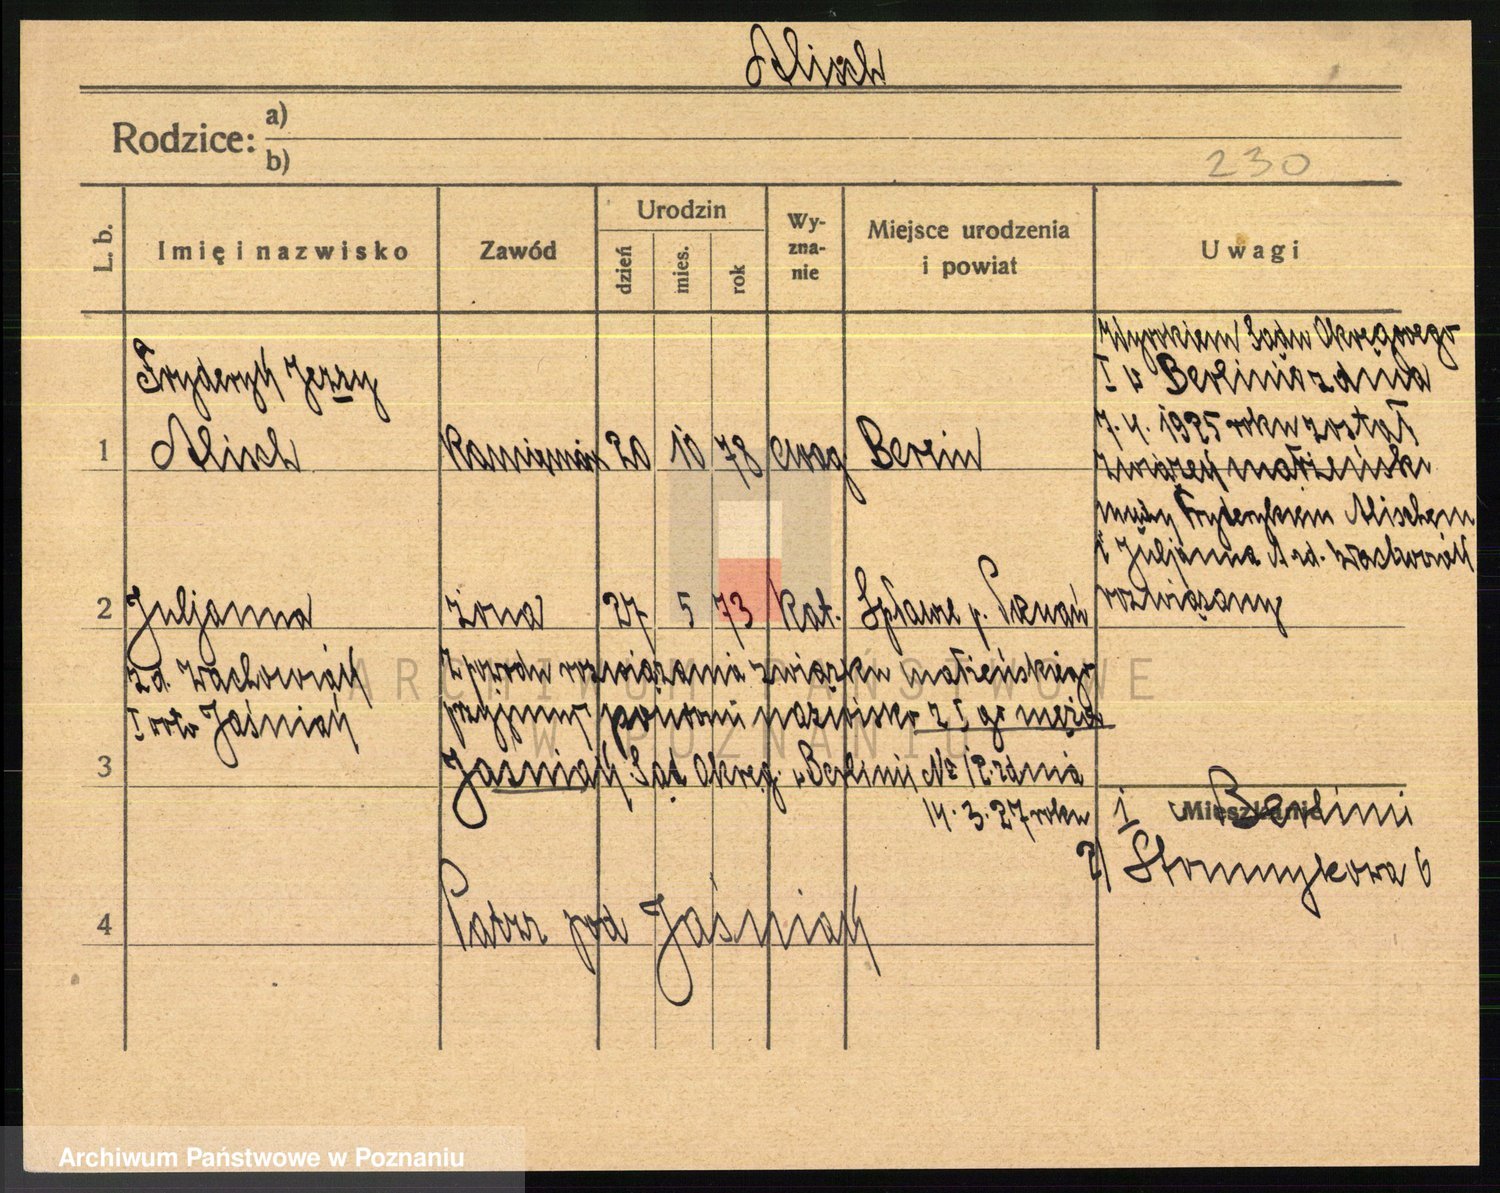 Alisch
Rodzice: a)
b)
230
L. b.
Imię i nazwisko
Zawód
Urodzin
dzień
mies.
rok
Wy-
zna-
nie
Miejsce urodzenia
i powiat
Uwagi
Fryderyk Jerzy
1 Alisch 20 10 78 ewag Berlin
Wyrokiem Sądu Okręgowego
I w Berlinie z dnia
7.4. 1925 roku został
związek małżeński
między Fryderykiem Alischem
i Juljanna A zd.
rozwiązany
2 Juljanna żona 27 5 73 kat. Spławie p. Poznań
zd.
I voto Jaśniak
Z powodu rozwiązania związku małżeńskiego
przyjmuje ponownie nazwisko z I go męża
3 Jaśniak Sąd Okręg. w Berlinie № 12. z dnia
14. 3. 27 roku
Mieszkanie
1 w Berlinie
2) 6
4 Patrz pod Jaśniak
ARCHIWUM PAŃSTWOWE
W POZNANIU
Archiwum Państwowe w Poznaniu